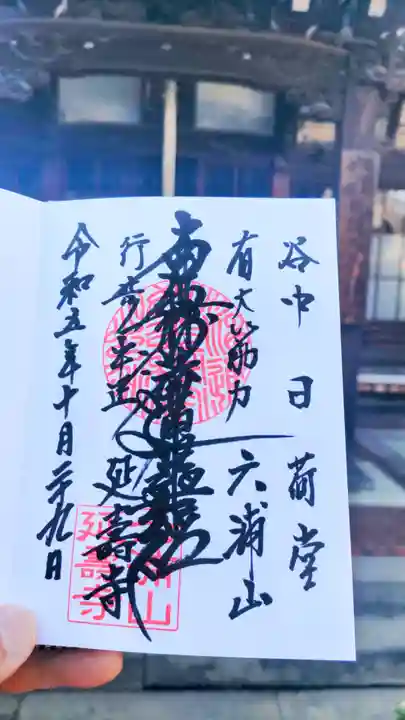 谷中 日荷堂
有大筋力 六浦山
南無妙法蓮華経
行歩平正 延壽寺
令和五年十月二十九日
延壽寺